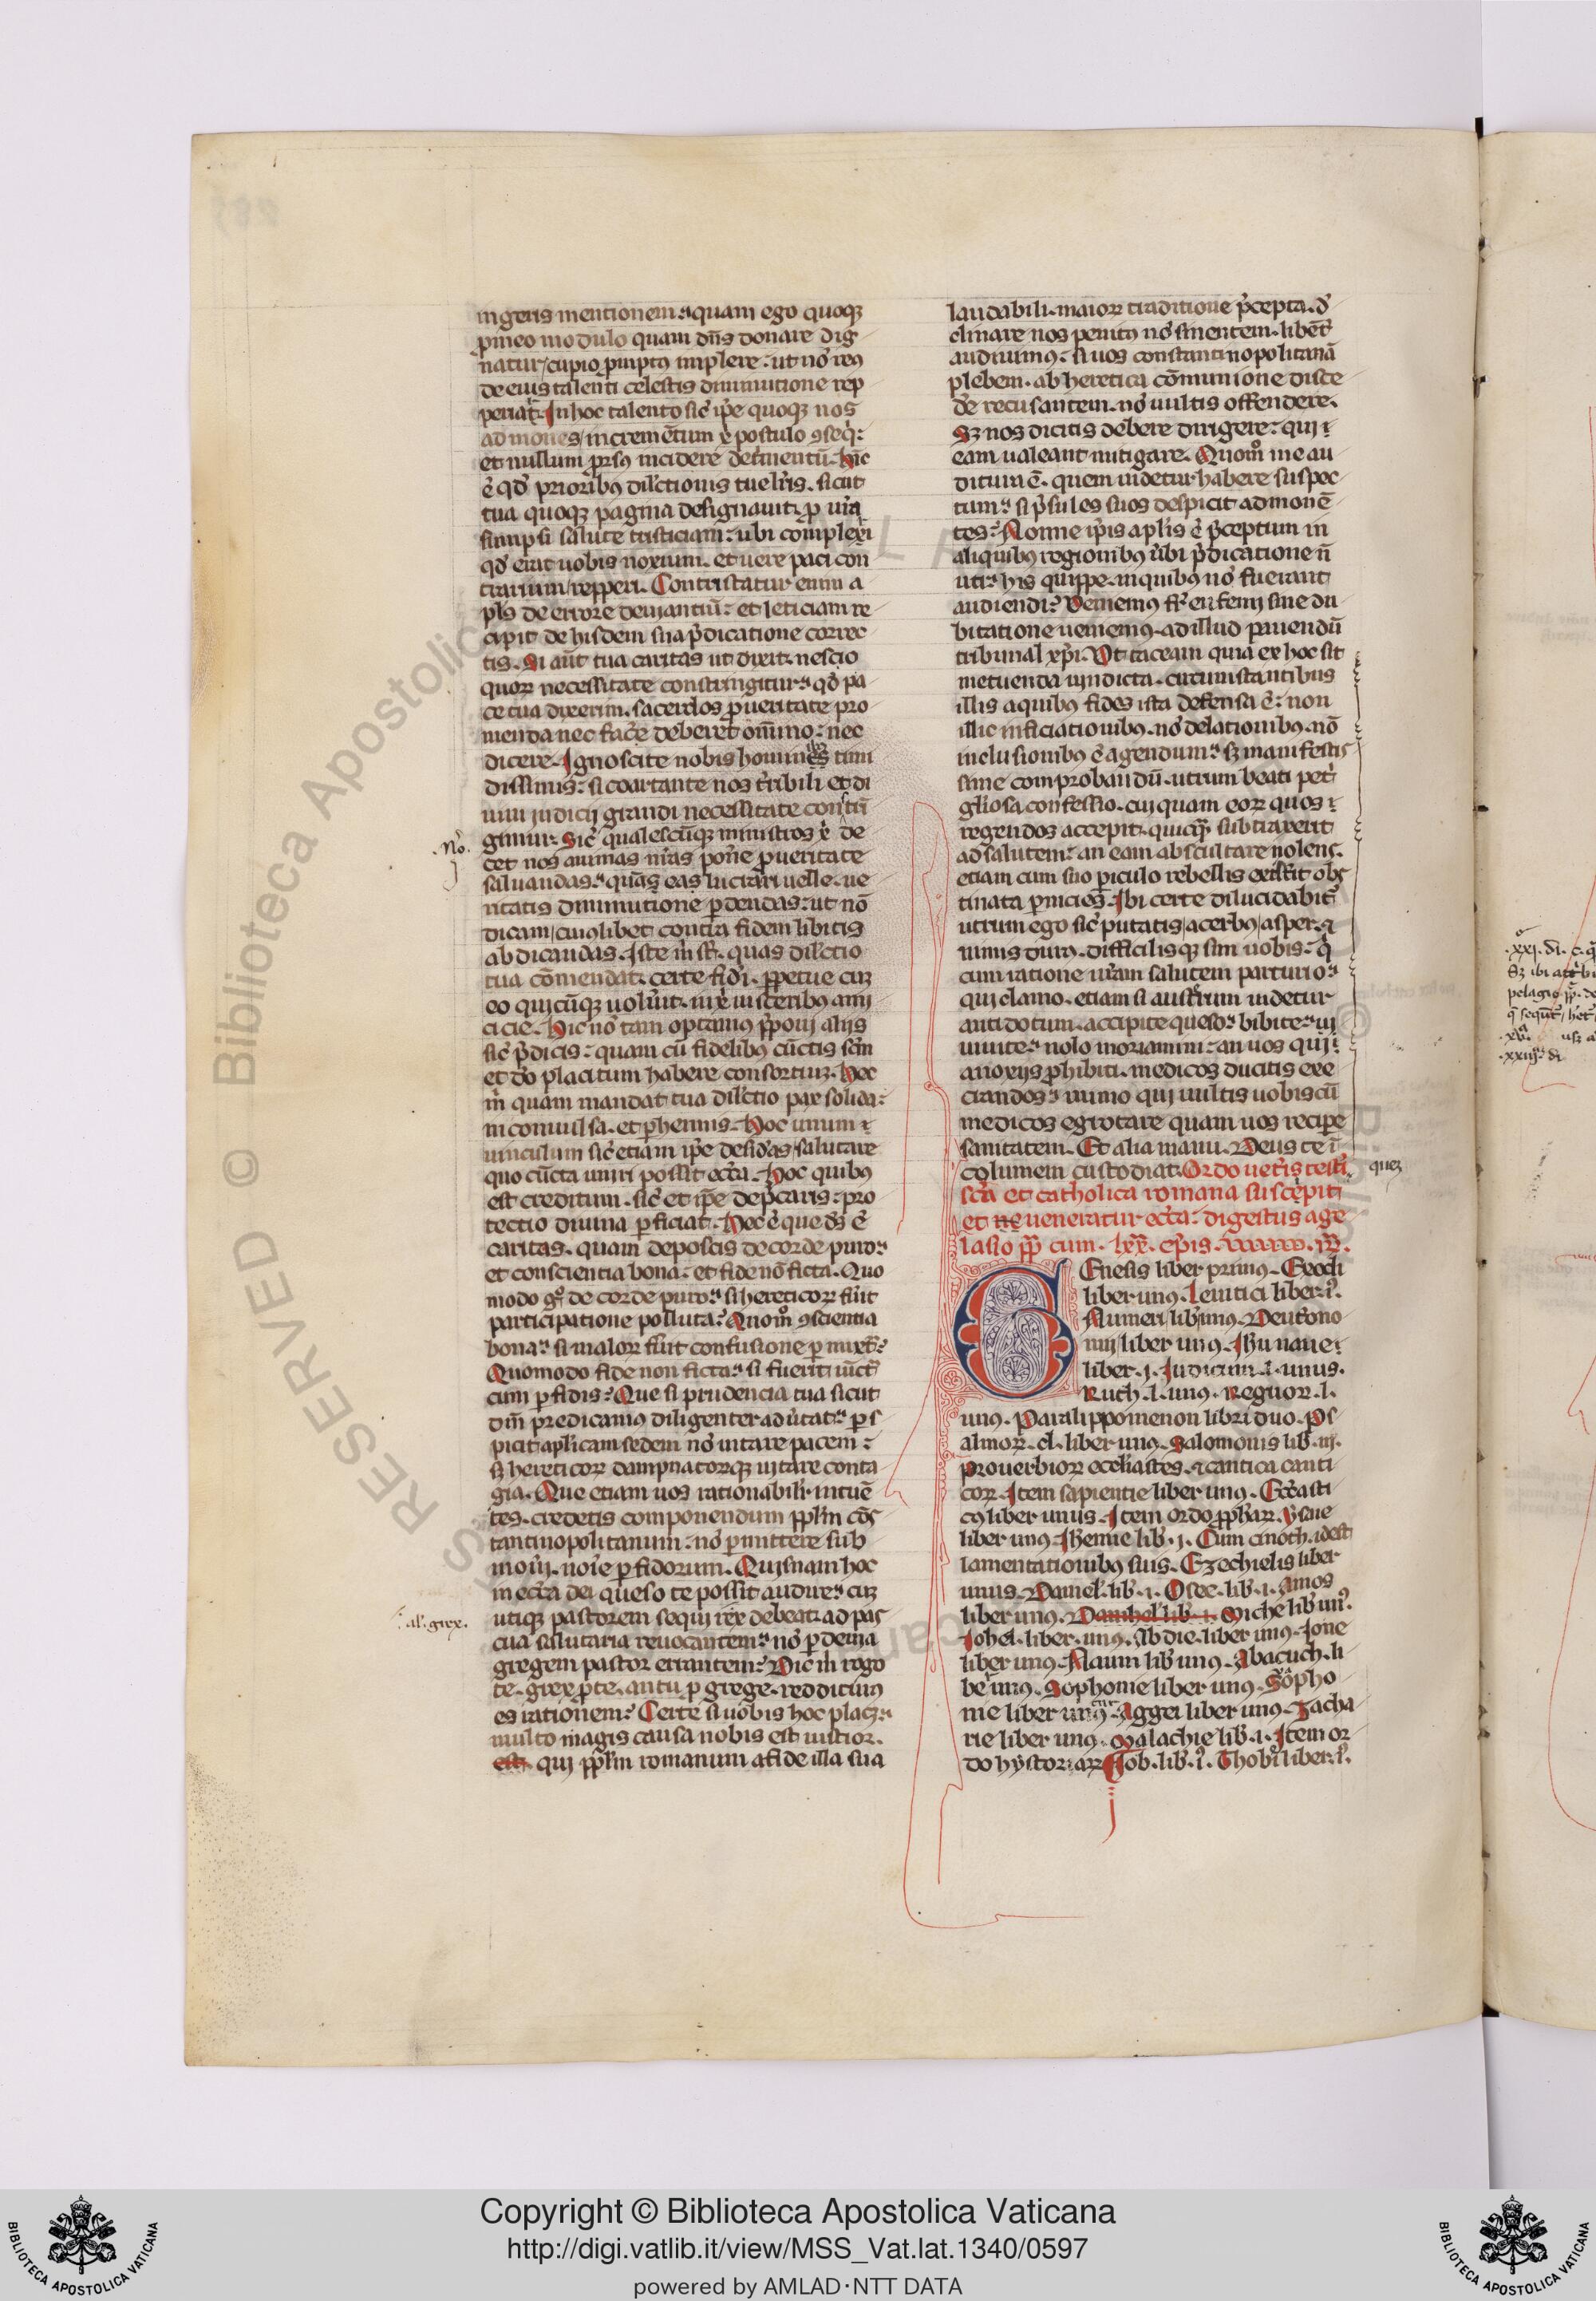 ingeris mentionem. quam ego quoqȝ
ꝓ meo modulo quam dn̄s donare dig
natur cupio ꝓmptꝰ implere. ut nō reꝰ
de eius talenti celestis diminutione rep
periat᷑. In hoc talento sic̄ ip̄e quoqȝ nos
admones incremētum xp̄i postulo ꝯseq̄.
et nullum ꝓrsꝰ incidere det̄mentū. Hīc
ē qđ prioribꝰ dil̄ctionis tue lr̄is. sicut
tua quoqȝ pagina designauit. ꝓ ur̄a
sumpsi salute tristiciam. ubi complexi
qđ erat uobis noxium. et uere paci con
trarium repperi. Contristatur enim a
pl̄s de errore deuiantiū. et leticiam re
cipit de hisdem sua p̄dicatione correc
tis. Si aūt tua caritas ut dixit. nescio
quoꝝ necessitate constringitur. qđ pa
ce tua dixerim. sacerdos ꝓ ueritate pro
menda nec fac̄e deberet om̄ino. nec
dicere. Ignoscite nobis hominibꝰ timi
dissimis. si coartante nos t̄ribili et di
uini iudicij grandi necessitate constri
gimur. Sic̄ qualescūqȝ ministros xp̄i de
cet nos animas nr̄as pon̄e ꝓ ueritate
saluandas. quas eas lucrari uelle. ue
ritatis diminutione ꝑdendas. ut nō
dicam cuiꝰlibet contra fidem libitis
abdicandas. Iste m̄ st̄. quas dil̄ctio
tua cōmendat. certe fid̄i. ꝑpetue cuȝ
eo quicūqȝ uolūit. in xp̄i uisceribꝰ ami
cicie. Hic nō tam optamꝰ p̄poni alijs
sic̄ p̄dicis. quam cū fidelibꝰ cūctis sc̄m
et dō placitum habere consortiuȝ. Hec
m̄ quam mandat tua dil̄ctio pax solida.
inconuulsa. et ꝑhennis. Hoc unum ⁊
uinculum sic̄ etiam ip̄e desid̄as salutare
quo cūcta uniri possit ecc̄a. Hoc quibꝰ
est creditum. sic̄ et ip̄e dep̄caris. pro
tectio diuina ꝑficiat. Hec ē que ds̄ ē
caritas. quam deposcis de corde puro.
et conscientia bona. et fide nō ficta. Quo
modo gͦ de corde puro. si hereticoꝝ fūit
participatione polluta. Quom̊ ꝯscientia
bona. si maloꝝ fūit confusione ꝑmixta.
Quomodo fide non ficta. si fuerit iūcta
cum ꝑfidis. Que si prudencia tua sicut
om̄ predicamꝰ diligenter aduertat. ꝑs
picit apl̄icam sedem nō uitare pacem.
sȝ hereticoꝝ dampnatorqȝ uitare conta
gia. Que etiam uos rationabilr̄ intuē
tes. credetis componendum ppl̄m cōs
tantinopolitanum. nō ꝑmittere sub
noie ꝑfidorum. Quisnam hoc
in ecc̄a dei queso te possit audire. cuȝ
utiqȝ pastorem sequi rex debeat. ad pas
cua salutaria reuocantem. nō ꝑ deuia
gregem pastor errantem. Dic m̄ rogo
te. grex ꝓ te. an tu ꝓ grege. redditurꝰ
es rationem. Certe si uobis hoc placȝ.
multo magis causa nobis est iustior.
est. qui ppl̄m romanum a fide illa sua
.No.
.al. grex.
laudabili. maioꝝ traditione p̄cepta. d̄
clinare nos penitꝰ nō sinentem. libēt̄
audiuimꝰ. si uos constantinopolitanā
plebem. ab heretica cōmunione disce
de recusantem. nō uultis offendere.
Sȝ nos dicitis debere dirigere. qui ⁊
eam ualeant mitigare. Quom̊ me au
ditura ē. quem uidetur habere suspec
tum. si p̄sules suos despicit admonē
tes. Nonne ip̄is apl̄is ē p̄ceptum in
aliquibꝰ regionibꝰ ūbi p̄dicatione ñ
uti. his quippe. in quibꝰ nō fuerant
audiendi. Veniemꝰ fr̄ eufemj sine du
bitatione ueniemꝰ. ad illud pauendū
tribunal xp̄i. Vt taceam quia ex hoc sit
metuenda uindicta. circumstantibus
illis a quibꝰ fides ista defensa ē. non
illic inficiationibꝰ. nō delationibꝰ. nō
inclusionibꝰ ē agendum. sȝ manifestis
sime comprobandū. utrum beati pet̄
gl̄iosa confessio. cuiquam eoꝝ quos ⁊
regendos accepit. quicq̄ subtraxerit
ad salutem. an eam abscultare nolens.
etiam cum suo ꝑiculo rebellis extitit obs
tinata ꝑnicies. Ibi certe dilucidabit᷑
utrum ego sic̄ putatis acerbꝰ asper. ⁊
nimis durꝰ. difficilisqȝ sim uobis. q̄
cum ratione ur̄am salutem parturio.
qui clamo. etiam si aust̄um uidetur
antidotum. accipite queso. bibite. ui
uiute. nolo moriamini. an uos qui.
a noxijs ꝓhibiti. medicos ducitis exe
crandos. immo qui uultis uobiscū
medicos egrotare quam uos recipe
sanitatem. Et alia manu. Deus te ī
columem custodiat. Ordo uet̄is test̄i.
quez
sc̄a et catholica romana suscepit
et ne ueneratur ecc̄a. digestus a ge
lasio pp̄ cum. lxx. ep̄is.
Genesis liber primꝰ. Exodi
liber unꝰ. Leuitici liber .i.
Numeri lib̄ unꝰ. Deut̄ono
mij liber unꝰ. Ihū naue.
liber .j. Iudicum .l. unus.
Ruth .l. unꝰ. Regnoꝝ .l.
unꝰ. Paralippomenon libri duo. Ps
almoꝝ .cl. liber unꝰ. Salomonis lib̄ .iij.
Prouerbioꝝ eccl̄iastes. ⁊ cantica canti
coꝝ. Item sapientie liber unꝰ. Ecc̄asti
cꝰ liber unus. Item ordo ꝓph̄aꝝ. ysaie
liber unꝰ. Iheremie lib̄ .j. Cum cinoth. idest
lamentationibꝰ suis. Ezechielis liber
unus. Daniel̄ lib̄ .i. Osee. lib̄ .i. Amos
liber unꝰ. Danihel lib̄ .i. Miche lib̄ unꝰ.
Iohel. liber. unꝰ. Abdie. liber unꝰ. Ione
liber unꝰ. Naum lib̄ unꝰ. Abacuch. li
ber unꝰ. Sophonie liber unꝰ. Sopho
nie liber unꝰ. Aggei liber unꝰ. Zacha
rie liber unꝰ. Malachie lib̄ .i. Item or
do hystoriaꝝ Iob. lib̄ .i. Thobi liber .i.
Copyright © Biblioteca Apostolica Vaticana
http://digi.vatlib.it/view/MSS_Vat.lat.1340/0597
powered by AMLAD·NTT DATA
BIBLIOTECA APOSTOLICA VATICANA
BIBLIOTECA APOSTOLICA VATICANA